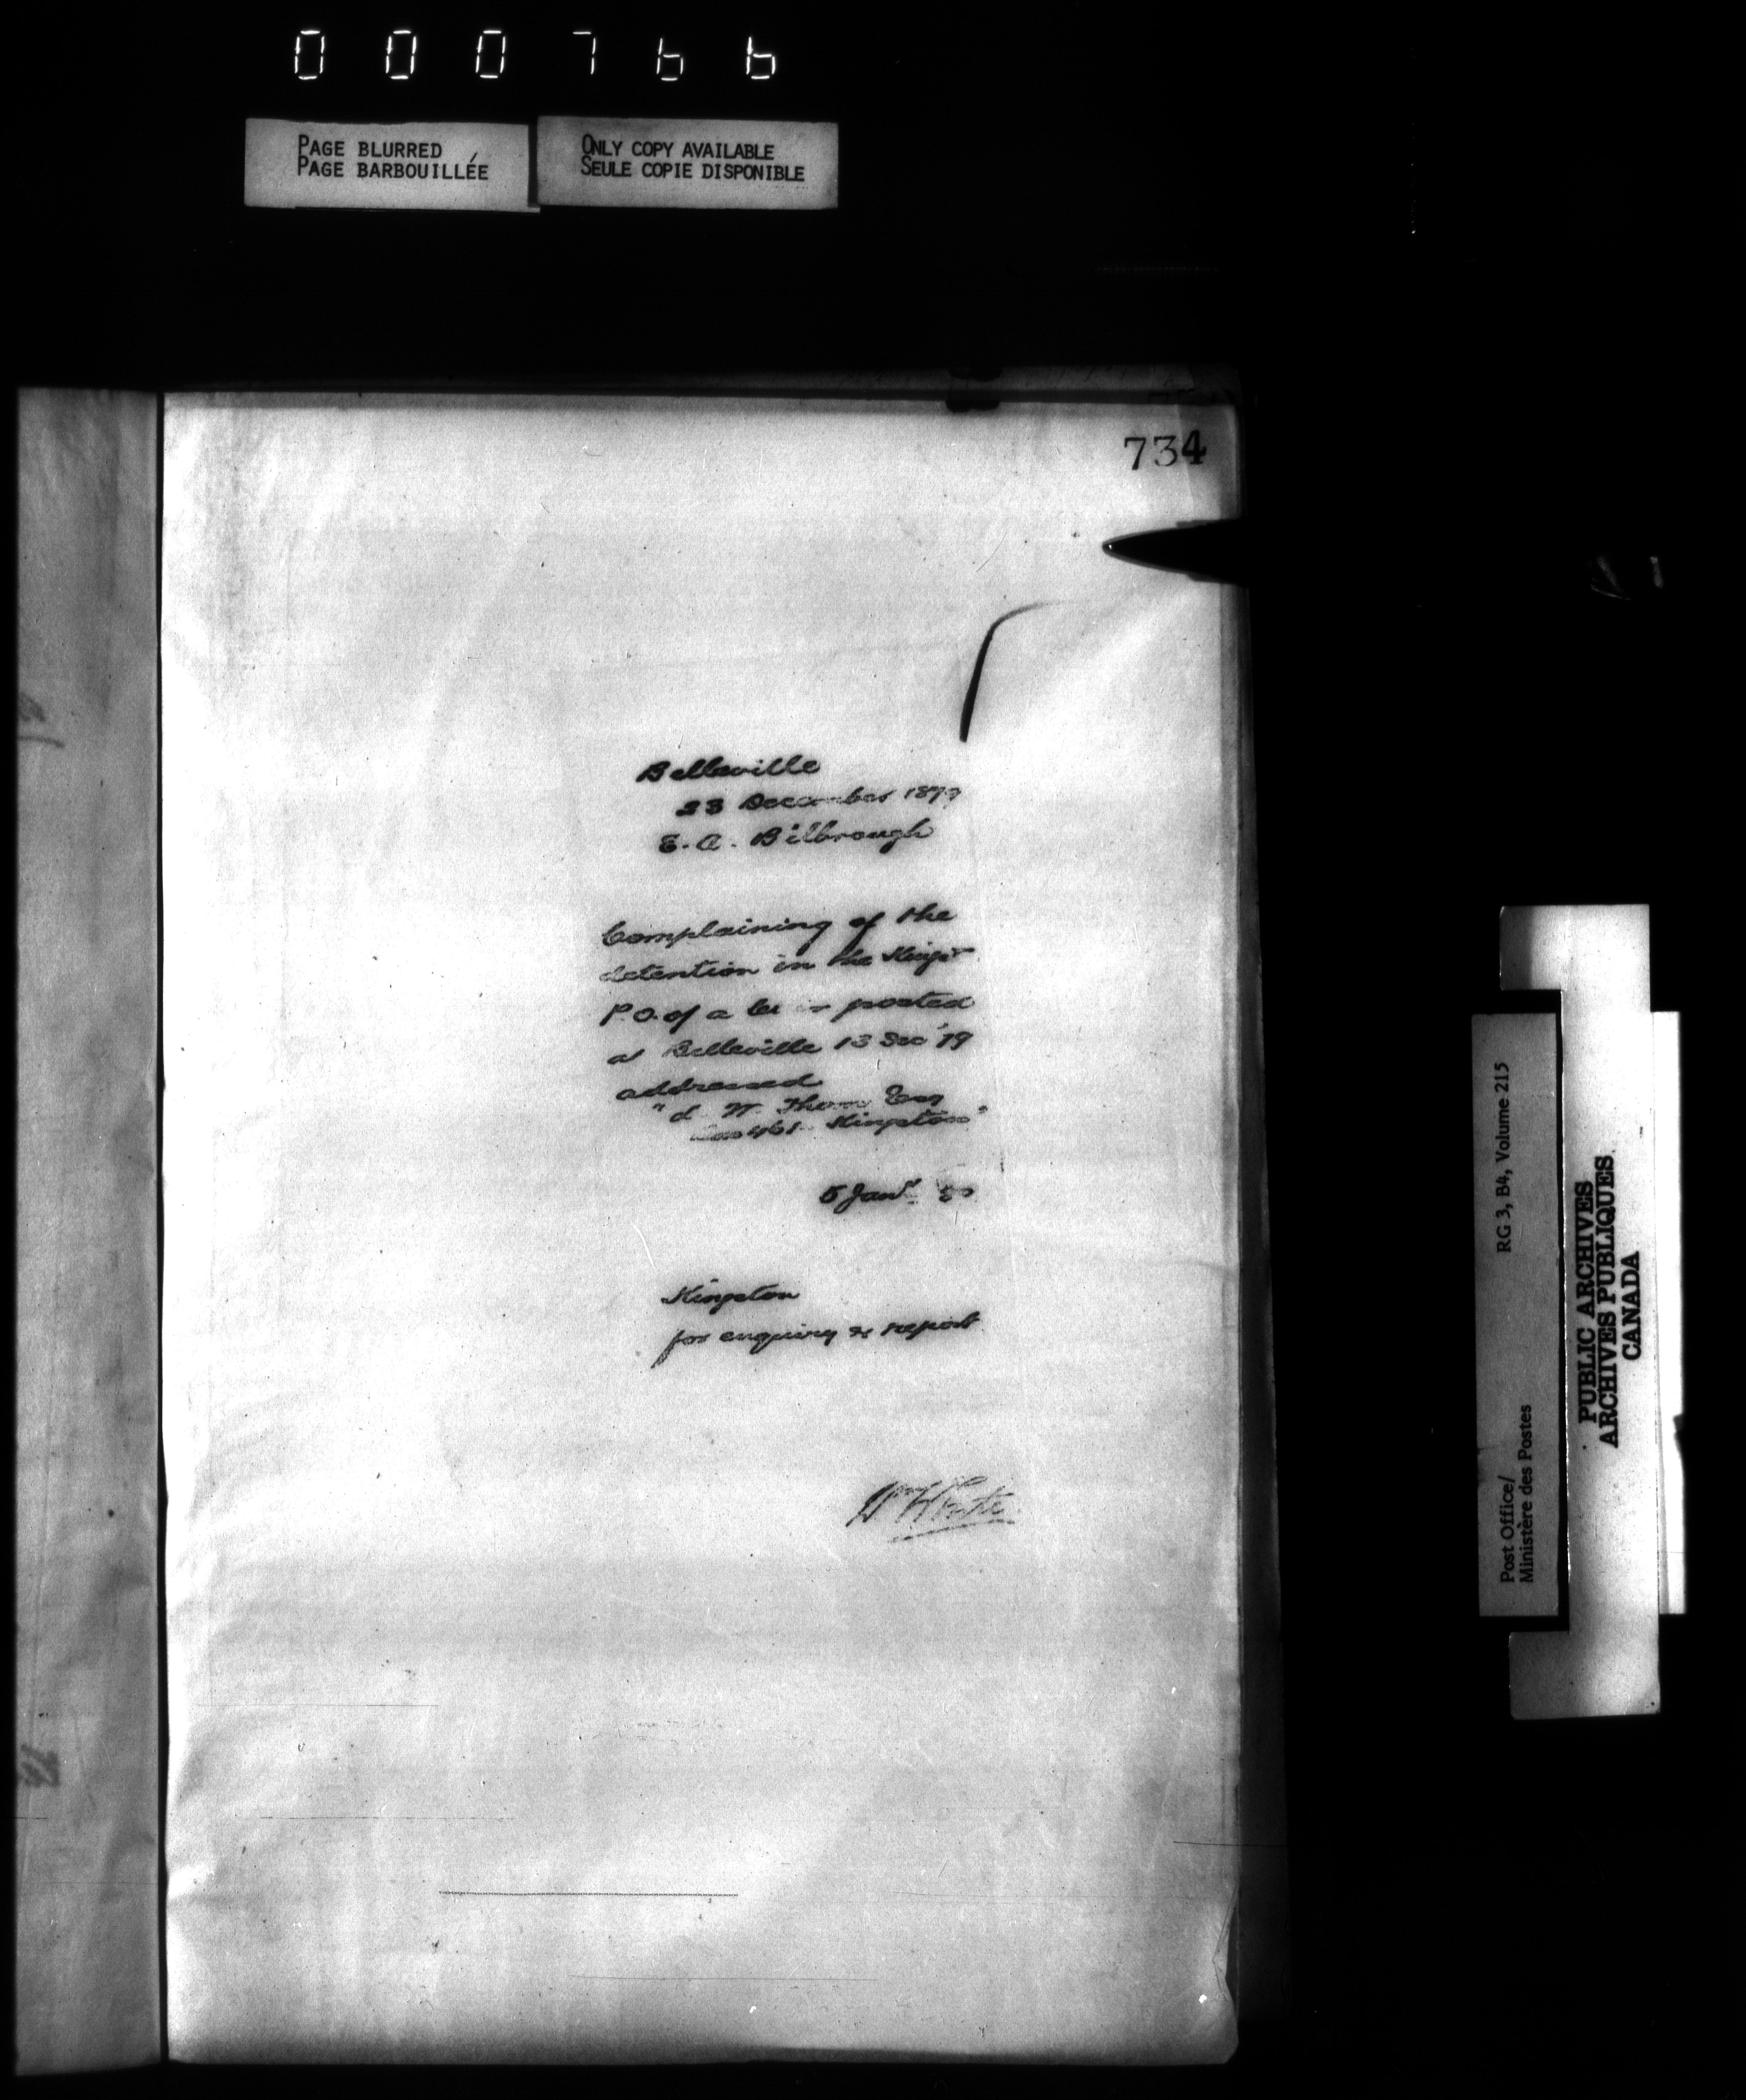 000766
PAGE BLURRED
PAGE BARBOUILLÉE
ONLY COPY AVAILABLE
SEULE COPIE DISPONIBLE
734
Belleville
23 December 1879
E. A. Bilbrough
Complaining of the
detention in the Kingst
P.O. of a posted
at Belleville 13 Dec '79
addressed
W. Thom Esq
Kingston"
5 Jany 80
Kingston
for enquiry & report
Wm White
Post Office/
Ministère des Postes
RG 3, B4, Volume 215
PUBLIC ARCHIVES
ARCHIVES PUBLIQUES
CANADA